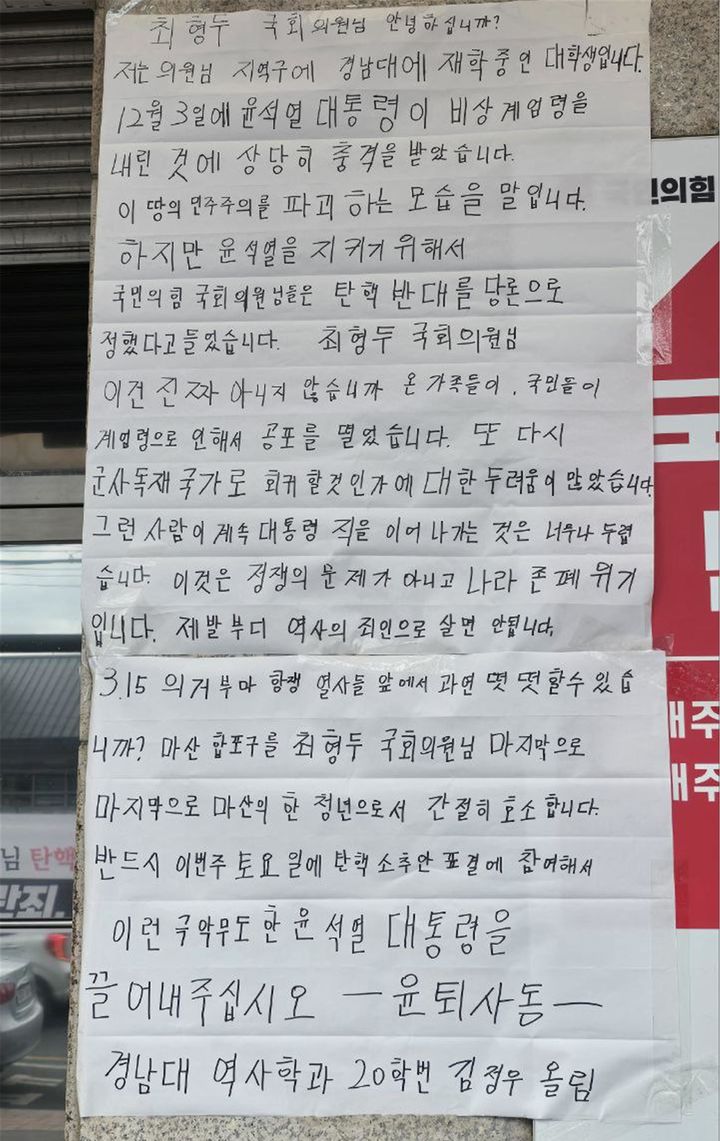 최형두 국회의원님 안녕하십니까?
저는 의원님 지역구에 경남대에 재학중인 대학생입니다.
12월 3일에 윤석열 대통령이 비상계엄령을
내린 것에 상당히 충격을 받았습니다.
이 땅의 민주주의를 파괴하는 모습을 말입니다.
하지만 윤석열을 지키기 위해서
국민의힘 국회의원님들은 탄핵 반대를 당론으로
정했다고 들었습니다. 최형두 국회의원님
이건 진짜 아니지 않습니까 온 가족들이, 국민들이
계엄령으로 인해서 공포를 떨었습니다. 또 다시
군사독재 국가로 회귀 할것인가에 대한 두려움이 많았습니다
그런 사람이 계속 대통령 직을 이어 나가는 것은 너무나 두렵
습니다. 이것은 정쟁의 문제가 아니고 나라 존폐 위기
입니다. 제발부디 역사의 죄인으로 살면 안됩니다.
3.15 의거 부마 항쟁 열사들 앞에서 과연 떳떳할수 있습
니까? 마산 합포구를 최형두 국회의원님 마지막으로
마지막으로 마산의 한 청년으로서 간절히 호소합니다.
반드시 이번주 토요일에 탄핵 소추안 표결에 참여해서
이런 극악무도한 윤석열 대통령을
끌어내주십시오 ㅡ윤퇴사동ㅡ
경남대 역사학과 20학번 김정우 올림
국민의힘
님 탄핵
란죄.